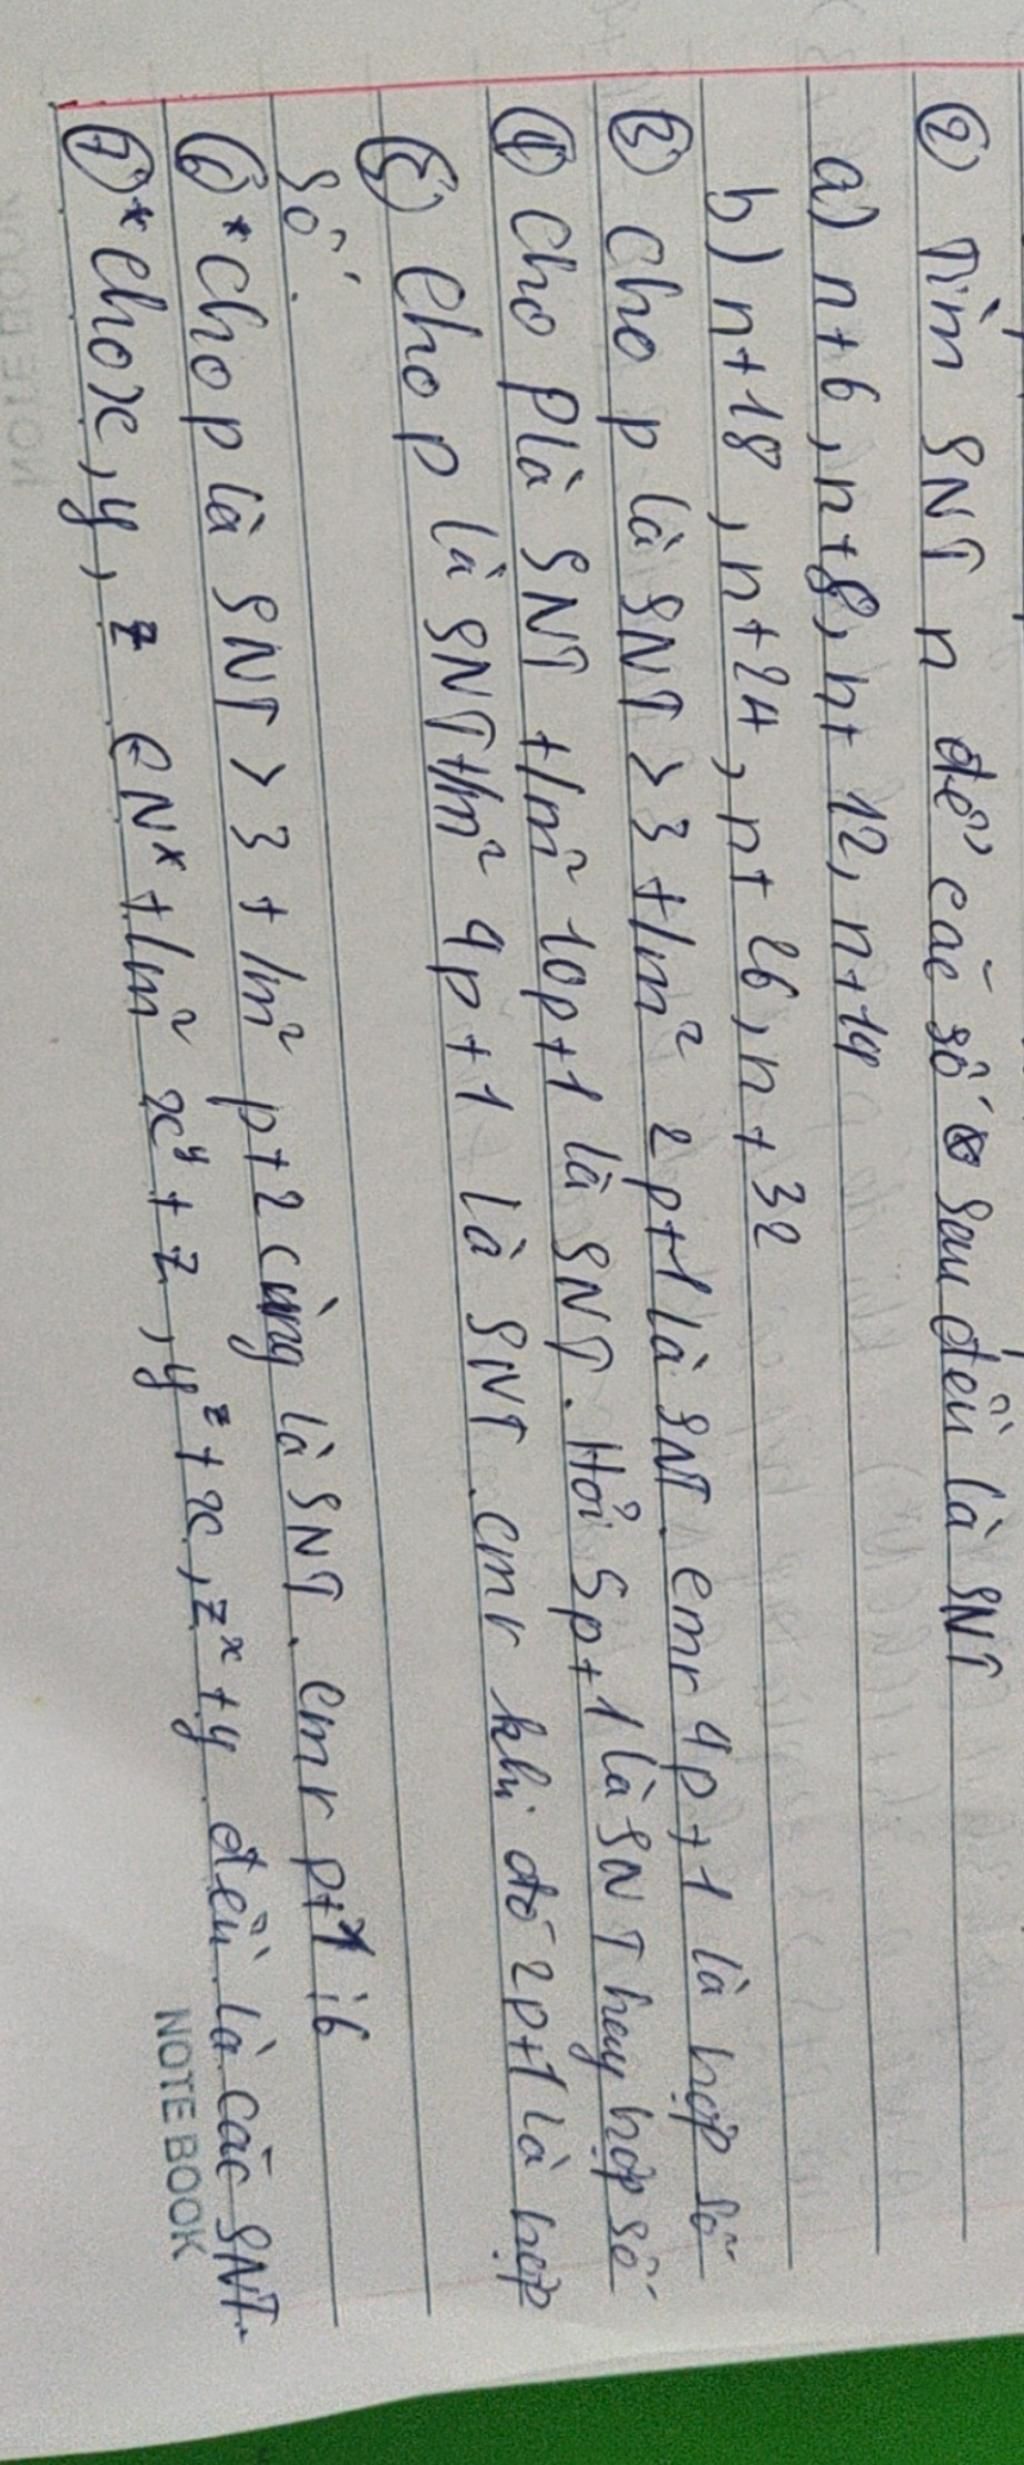 ② Tìm SNT n để các số sau đều là SNT
a) n+6, n+8, n+12, n+14
b) n+18, n+24, n+26, n+32
③ Cho p là SNT > 3 t/m² 2p+1 là SNT. cmr 4p+1 là hợp số
④ Cho p là SNT t/m² 10p+1 là SNT. Hỏi 5p+1 là SNT hay hợp số
⑤ Cho p là SNT t/m² 4p+1 là SNT. cmr khi đó 2p+1 là hợp
số.
⑥* Cho p là SNT > 3 t/m² p+2 cũng là SNT. Cmr p+1 ⋮ 6
⑦* Cho x, y, z ∈ N* t/m² x^y + z, y^z + x, z^x + y đều là các SNT.
NOTE BOOK